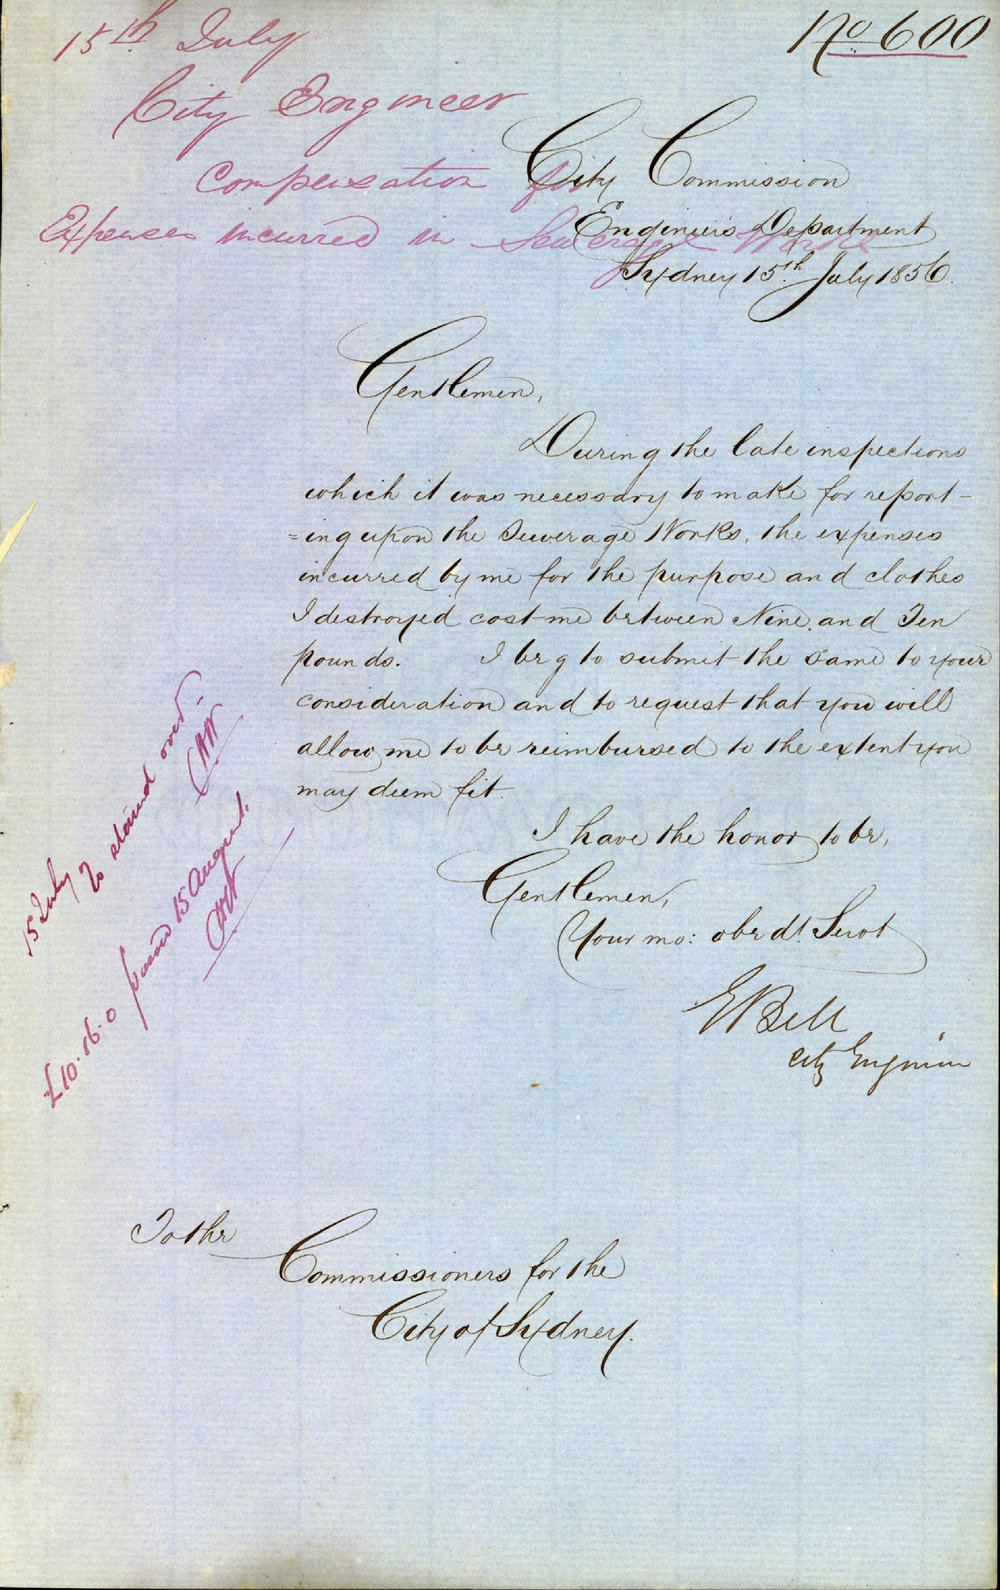 No 600
15th July
City Engineer
Compensation for
Expenses incurred in Sewerage Works
City Commission
Engineers Department
Sydney 15th July 1856.
Gentlemen,
During the late inspections
which it was necessary to make for report-
=ing upon the Sewerage Works, the expenses
incurred by me for the purpose and clothes
I destroyed cost me between Nine and Ten
pounds. I beg to submit the same to your
consideration and to request that you will
allow me to be reimbursed to the extent you
may deem fit.
I have the honor to be,
Gentlemen,
Your mo: obedt. Servt
E Bell
City Engineer
15 July
To stand over.
£10.16.0 passed 15 August.
To the
Commissioners for the
City of Sydney.